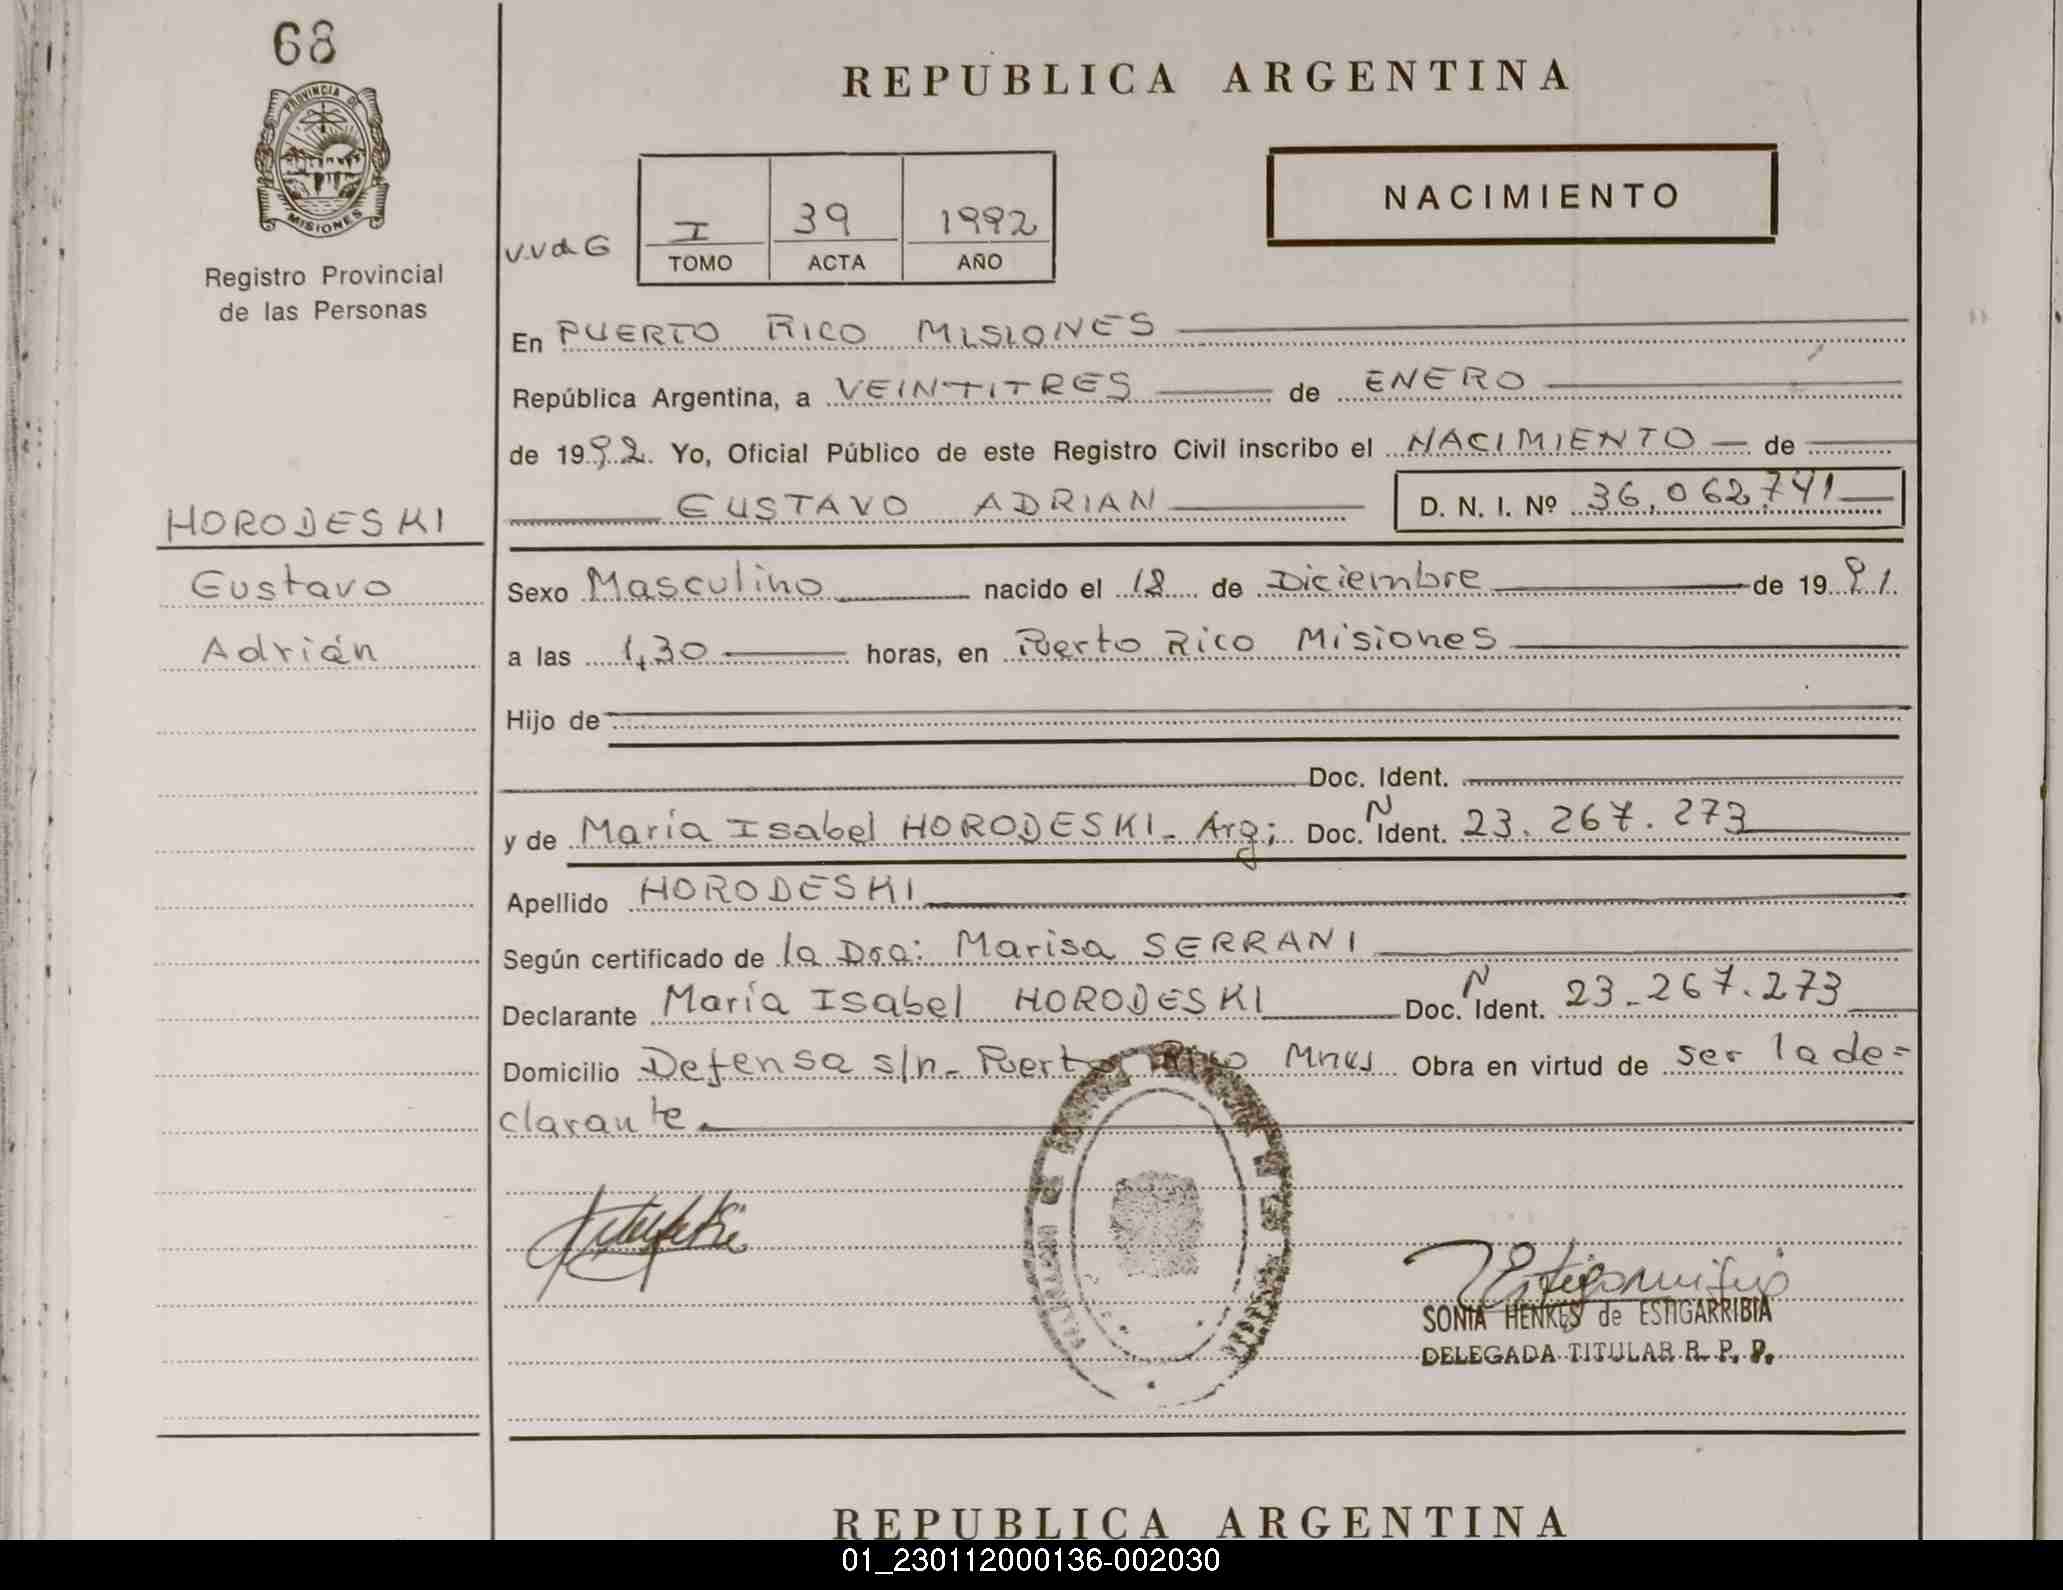 68
PROVINCIA DE
MISIONES
Registro Provincial
de las Personas
REPUBLICA ARGENTINA
NACIMIENTO
V.V de G
I 39 1992
TOMO ACTA AÑO
En PUERTO RICO MISIONES
República Argentina, a VEINTITRES de ENERO
de 1992. Yo, Oficial Público de este Registro Civil inscribo el NACIMIENTO de
GUSTAVO ADRIAN D. N. I. Nº 36.062.741
HORODESKI
Gustavo
Adrián
Sexo Masculino nacido el 18 de Diciembre de 1991.
a las 1,30 horas, en Puerto Rico Misiones
Hijo de
Doc. Ident.
y de María Isabel HORODESKI - Arg; Doc. N Ident. 23.267.273
Apellido HORODESKI
Según certificado de la Dra: Marisa SERRANI
Declarante María Isabel HORODESKI Doc. N Ident. 23-267.273
Domicilio Defensa s/n - Puerto Rico Mnes Obra en virtud de ser la de=
clarante
SONIA HENKES de ESTIGARRIBIA
DELEGADA TITULAR R. P. P.
REPUBLICA ARGENTINA
01_230112000136-002030